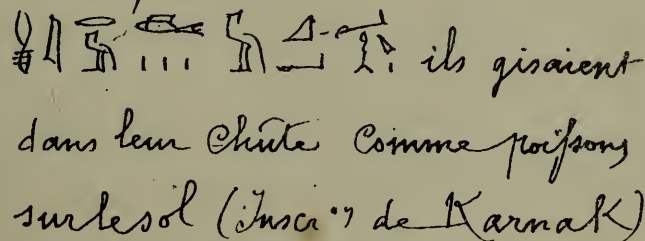 ils gisaient
dans leur chûte comme poissons
sur le sol (Inscr.on de Karnak)